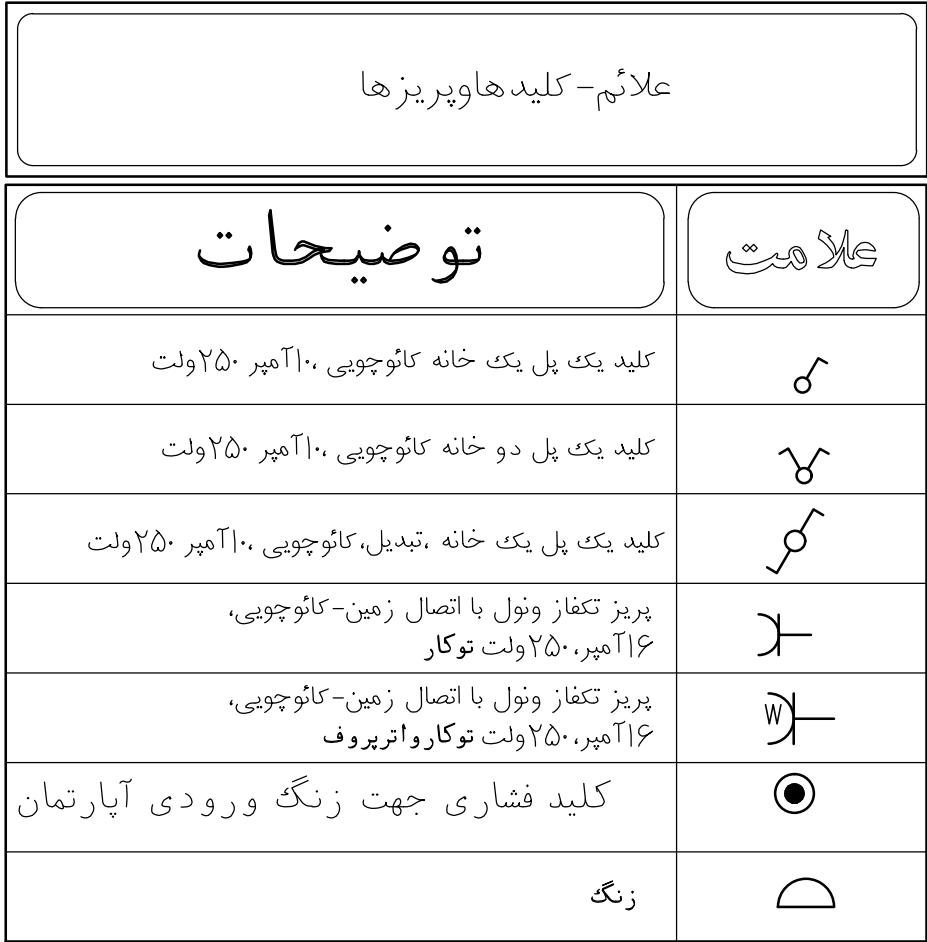 علائم-کلیدهاوپریزها
توضیحات
علامت
کلید یک پل یک خانه کائوچویی ،۱۰آمپر ۲۵۰ولت
کلید یک پل دو خانه کائوچویی ،۱۰آمپر ۲۵۰ولت
کلید یک پل یک خانه ،تبدیل،کائوچویی ،۱۰آمپر ۲۵۰ولت
پریز تکفاز ونول با اتصال زمین-کائوچویی،
۱۶آمپر،۲۵۰ولت توکار
پریز تکفاز ونول با اتصال زمین-کائوچویی،
۱۶آمپر،۲۵۰ولت توکارواترپروف
W
کلید فشاری جهت زنگ ورودی آپارتمان
زنگ